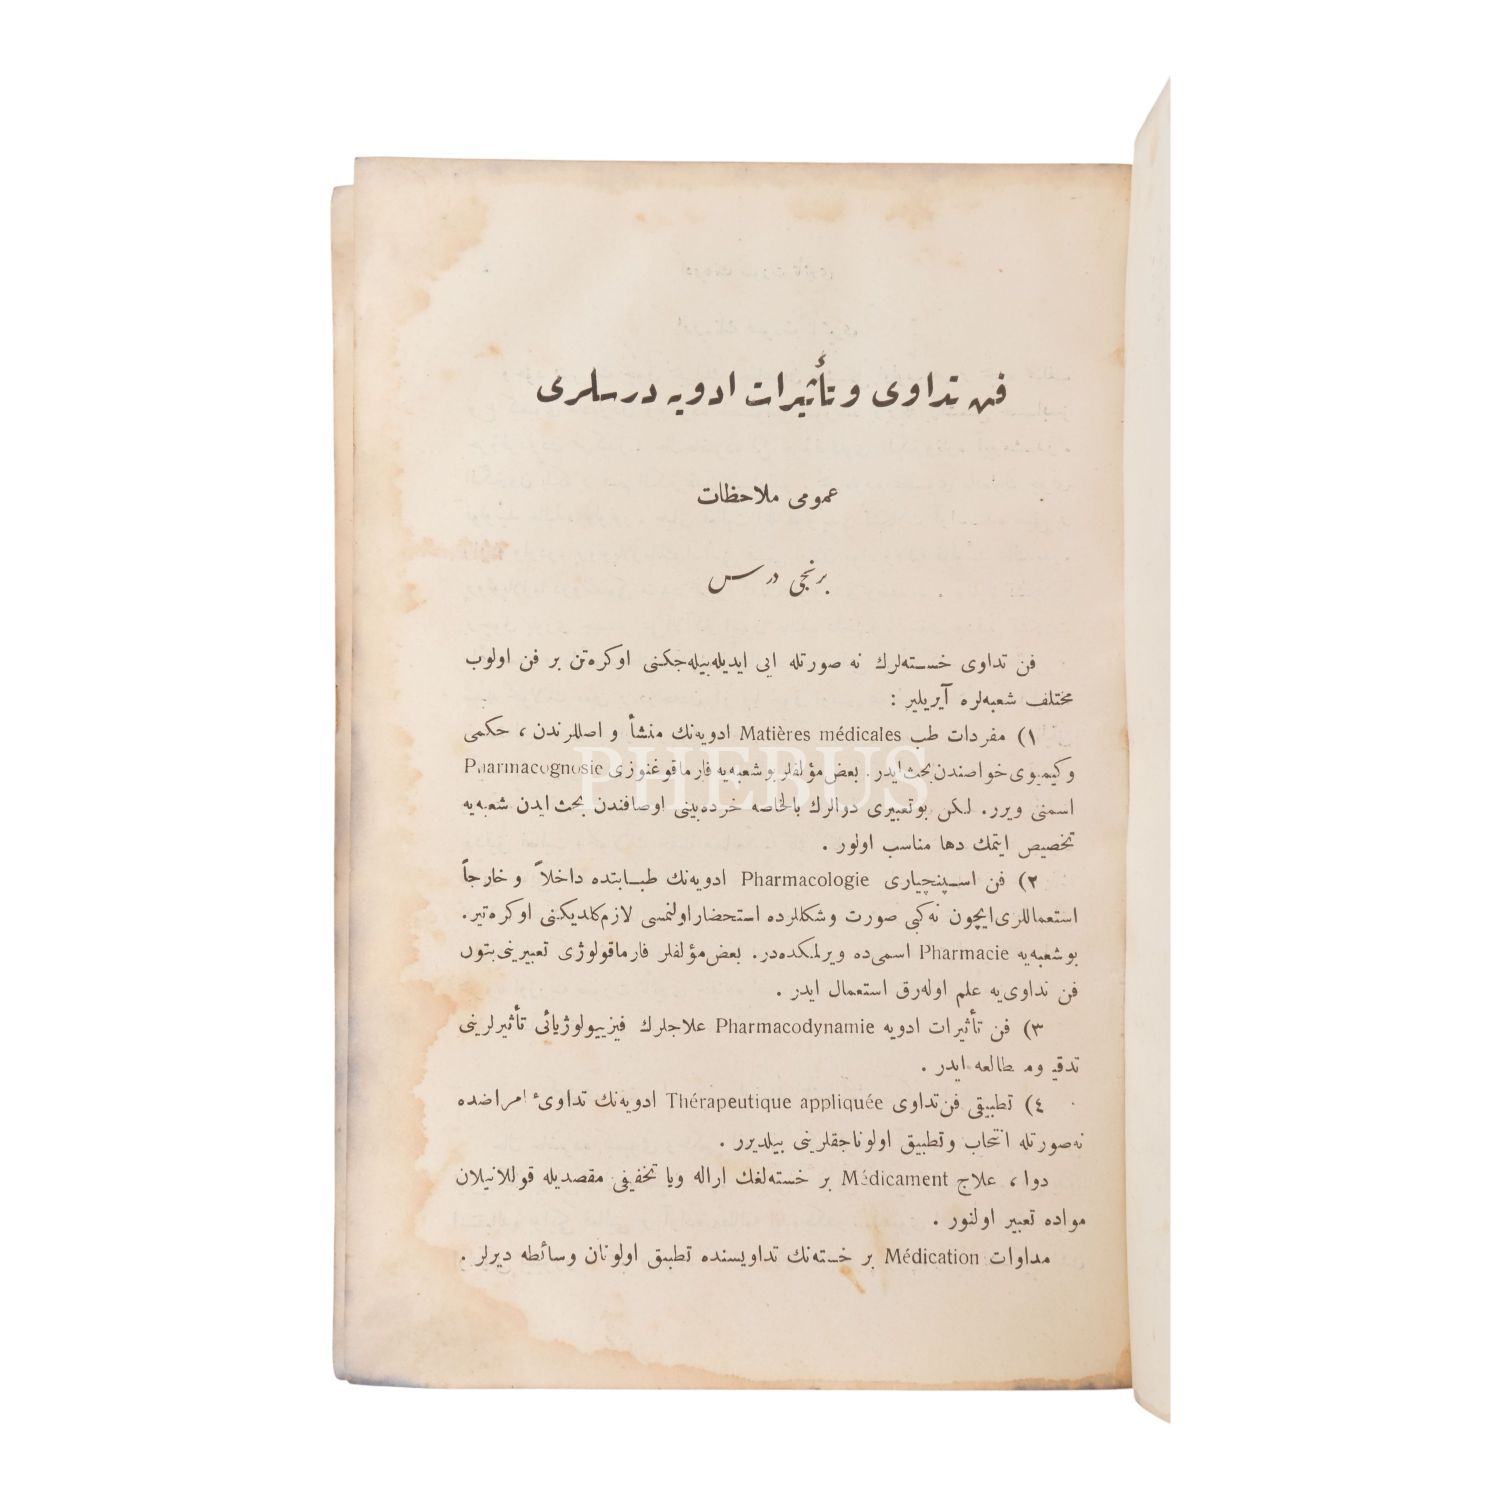 فن تداوی و تأثيرات ادويه درسلری
عمومی ملاحظات
برنجی درس
فن تداوی خسته‌لرك نه صورتله ایی ایدیله‌بیله‌جكنی اوكره‌تن بر فن اولوب
مختلف شعبه‌لره آیریلیر :
۱) مفردات طب Matières médicales ادویه‌نك منشأ و اصللرندن ، حكمی
وكیمیوی خواصندن بحث ایدر. بعض مؤلفلر بو شعبه‌یه فارماقوغنوزی Pharmacognosie
اسمنی ویرر. لكن بو تعبیری دوالرك بالخاصه خرده‌بینی اوصافندن بحث ایدن شعبه‌یه
تخصیص ایتمك دها مناسب اولور .
۲) فن اسپنچیاری Pharmacologie ادویه‌نك طبابتده داخلاً و خارجاً
استعماللری ایچون نه‌كبی صورت وشكللرده استحضار اولنمسی لازم‌كلدیكینی اوكره‌تیر.
بو شعبه‌یه Pharmacie اسمی‌ده ویرلمكده‌در. بعض مؤلفلر فارماقولوژی تعبیرینی بتون
فن تداوی‌یه علم اوله‌رق استعمال ایدر .
۳) فن تأثیرات ادویه Pharmacodynamie علاجلرك فیزییولوژیائی تأثیرلرینی
تدقیق ومطالعه ایدر .
٤) تطبیقی فن تداوی Thérapeutique appliquée ادویه‌نك تداوئ امراضده
نه‌صورتله انتخاب وتطبیق اولوناجقلرینی بیلدیرر .
دوا ، علاج Médicament بر خسته‌لغك ازاله ویا تخفیفی مقصدیله قوللانیلان
مواده تعبیر اولنور .
مداوات Médication بر خسته‌نك تداویسنده تطبیق اولونان وسائطه دیرلر .
PHEBUS